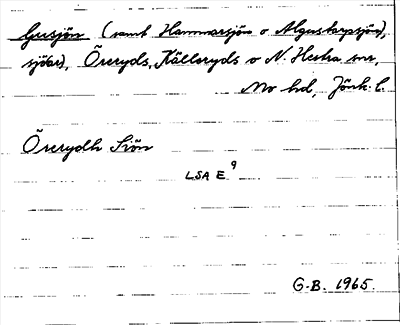 Gusjön (samt Hammarsjön o Algustorpsjön),
sjö(ar), Öreryds, Källeryds o N. Hestra snr,
Mo hd, Jönk. l.
Örerydh Siön
LSA E 9
G.B. 1965.